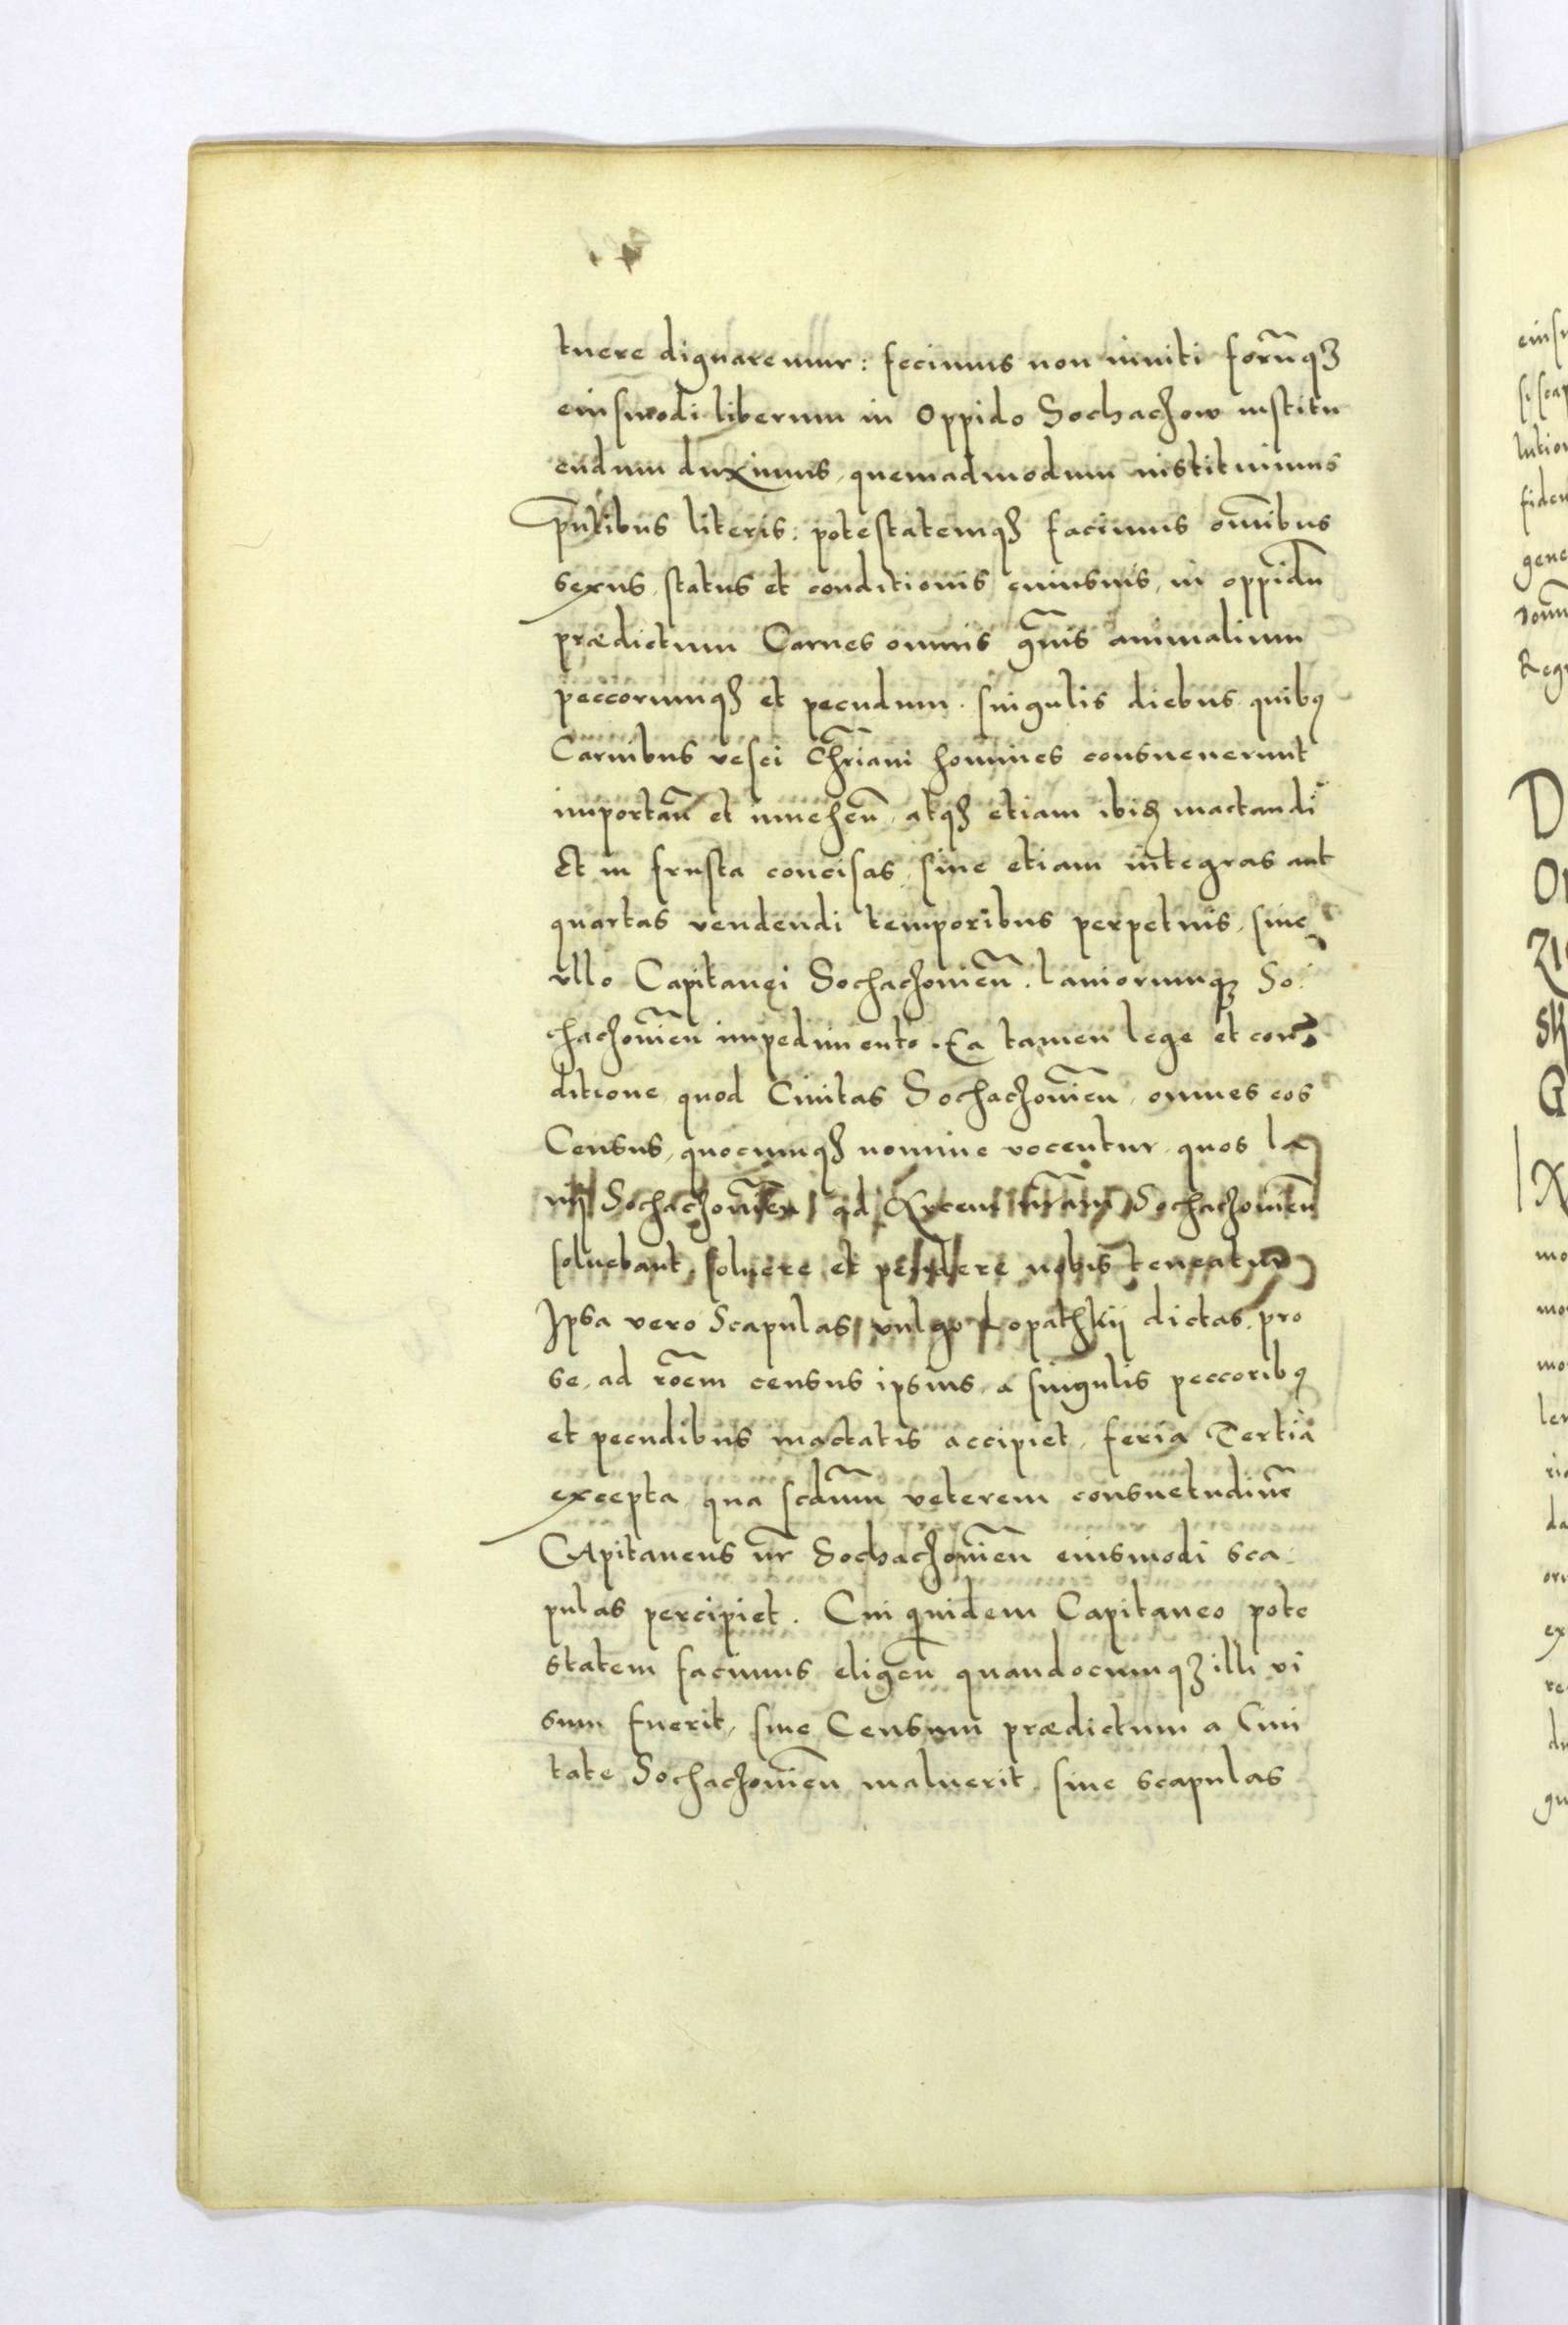 tuere dignaremur: fecimus non inuiti forūqȝ
eiusmodi liberum in Oppido Sochaczow institu
endum duximus, quemadmodum instituimus
pñtibus literis: potestatemqȝ facimus omībus
sexus, status et conditionis cuiusuis, in oppidū
prædictum Carnes omnis gñis animalium
peccorumqȝ et pecudum. singulis diebus quibꝰ
Carnibus vesci Chr̃iani homines consueuerunt
importañ et inueheñ, atqȝ etiam ibiꝫ mactandi
Et in frusta concisas, siue etiam integras aut
quartas vendendi temporibus perpetuis, sine
vllo Capitanei Sochaczouieñ. laniorumqȝ So:
chaczouieñ impedimento. Ea tamen lege et con:
ditione, quod Ciuitas Sochaczouieñ, omnes eos
Census, quocumqȝ nomine vocentur, quos la
nij Sochaczouieñ ad Arcem nr̃am Sochaczouieñ
soluebant, soluere et pendere nobis teneatur
Ipsa vero Scapulas, vulgo Lopathkij dictas, pro
se, ad rõem census ipsius, a singulis peccoribꝰ
et pecudibus mactatis accipiet, feria Tertia
excepta, qua scdum̃ veterem consuetudinē
CApitaneus nr̃ Sochaczouieñ eiusmodi sca:
pulas percipiet. Cui quidem Capitaneo pote
statem facimus eligeñ quandocumqȝ illi vi
sum fuerit, siue Censum prædictum a Ciui
tate Sochaczouieñ maluerit, siue scapulas